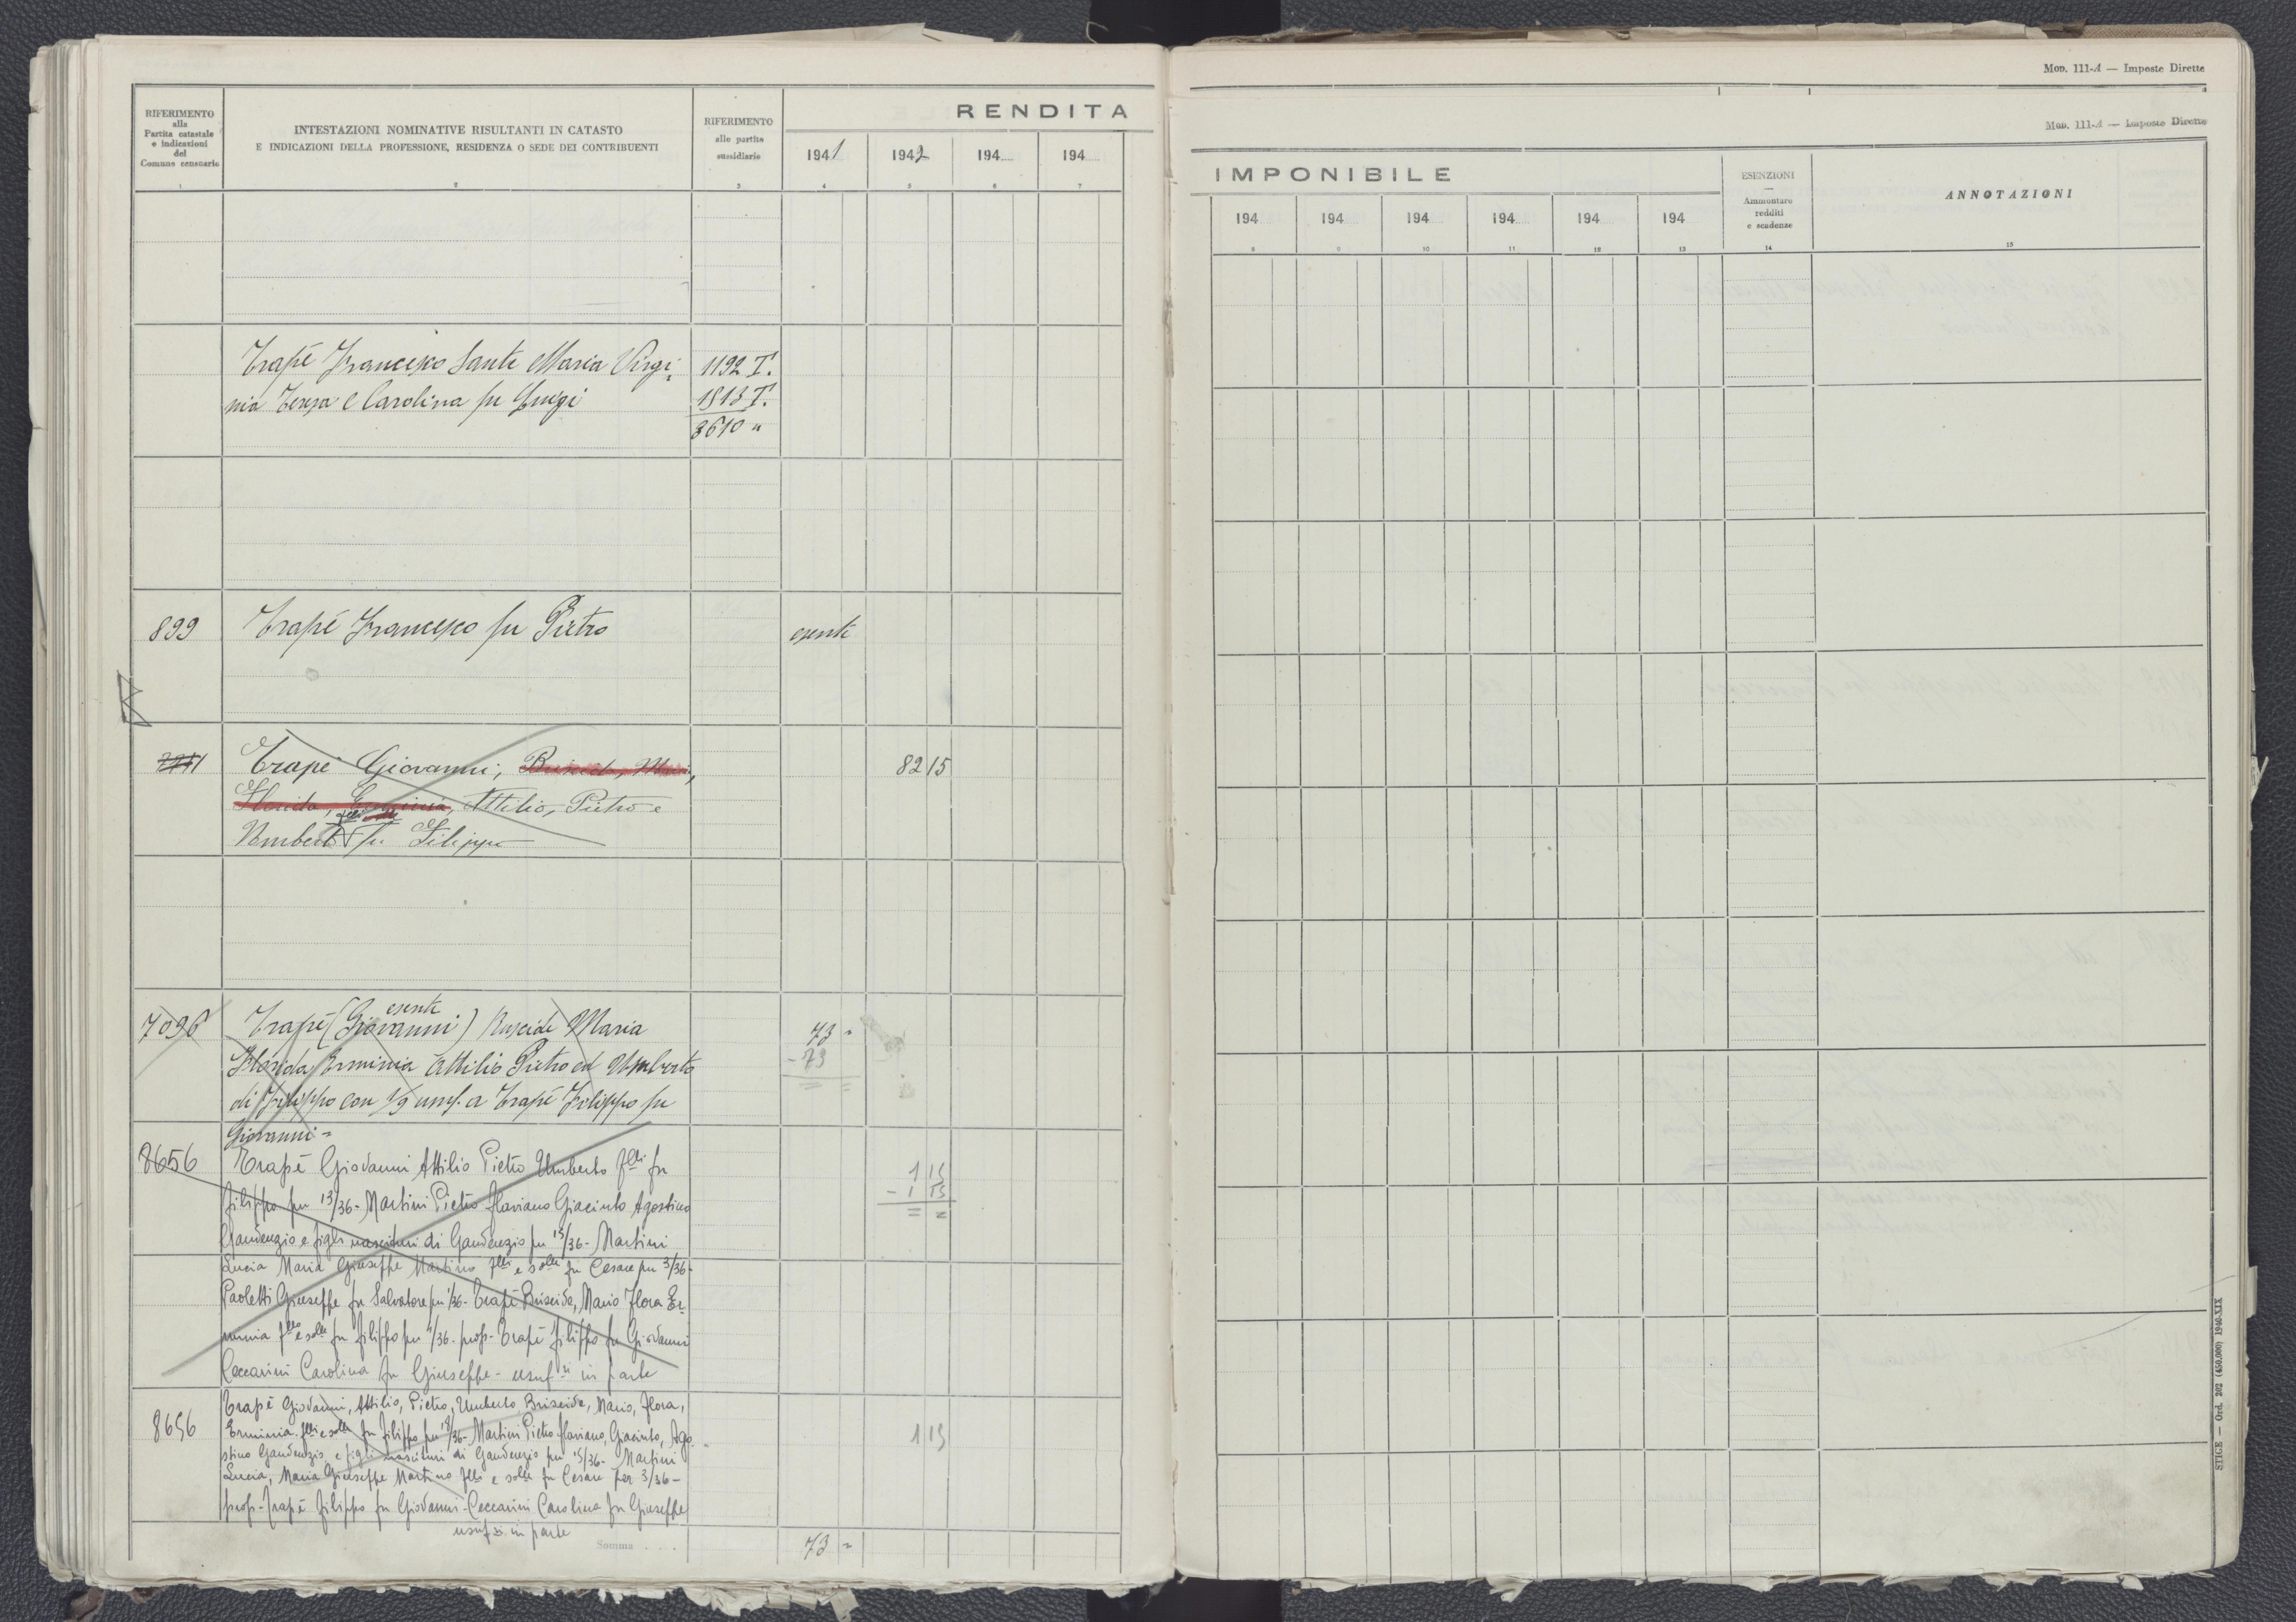 RIFERIMENTO
alla
Partita catastale
e indicazioni
del
Comune censuario
INTESTAZIONI NOMINATIVE RISULTANTI IN CATASTO
E INDICAZIONI DELLA PROFESSIONE, RESIDENZA O SEDE DEI CONTRIBUENTI
RIFERIMENTO
alle partite
sussidiarie
RENDITA
1941 1942 194 194
1 2 3 4 5 6 7
Trapé Francesco Sante Maria Virgi- 1192 T.
nia Teresa e Carolina fu Luigi 1813 T.
3610 "
899 Trapé Francesco fu Pietro esente
Trapé Giovanni, 82 15
Attilio, Pietro e
Umberto fu Filippo
7096 Trapé (Giovanni) Buseide Maria 73 "
esente
Florida Erminia Attilio Pietro ed Umberto - 73
di Filippo con 1/9 usuf. a Trapé Filippo fu
Giovanni =
8656 Trapé Giovanni Attilio Pietro Umberto flli fu 1 15
Filippo per 13/36 - Martini Pietro Flaviano Giacinto Agostino - 1 15
Gaudenzio e figli nascituri di Gaudenzio per 15/36 - Martini
Lucia Maria Giuseppe Martino flli e slle fu Cesare per 3/36 -
Paoletti Giuseppe fu Salvatore per 1/36 - Trapé Briseide, Mario Flora Er-
minia fllo e slle fu Filippo per 4/36 - prop - Trapé Filippo fu Giovanni
Ceccarini Carolina fu Giuseppe - usufri in parte
8656 Trapé Giovanni, Attilio, Pietro, Umberto Briseide, Mario, Flora,
Erminia flli e slle fu Filippo per 18/36 - Martini Pietro Flaviano, Giacinto, Ago- 1 15
stino Gaudenzio e figli nascituri di Gaudenzio per 15/36 - Martini
Lucia, Maria Giuseppe Martino flli e slle fu Cesare per 3/36 -
prop - Trapé Filippo fu Giovanni - Ceccarini Carolina fu Giuseppe
usufri in parte
Somma . . . . 73 "
MOD. 111-A — Imposte Dirette
MOD. 111-A — Imposte Dirette
IMPONIBILE
ESENZIONI
—
Ammontare
redditi
e scadenze
ANNOTAZIONI
194 194 194 194 194 194
8 9 10 11 12 13 14 15
STICE — Ord. 202 (450.000) 1940-XIX